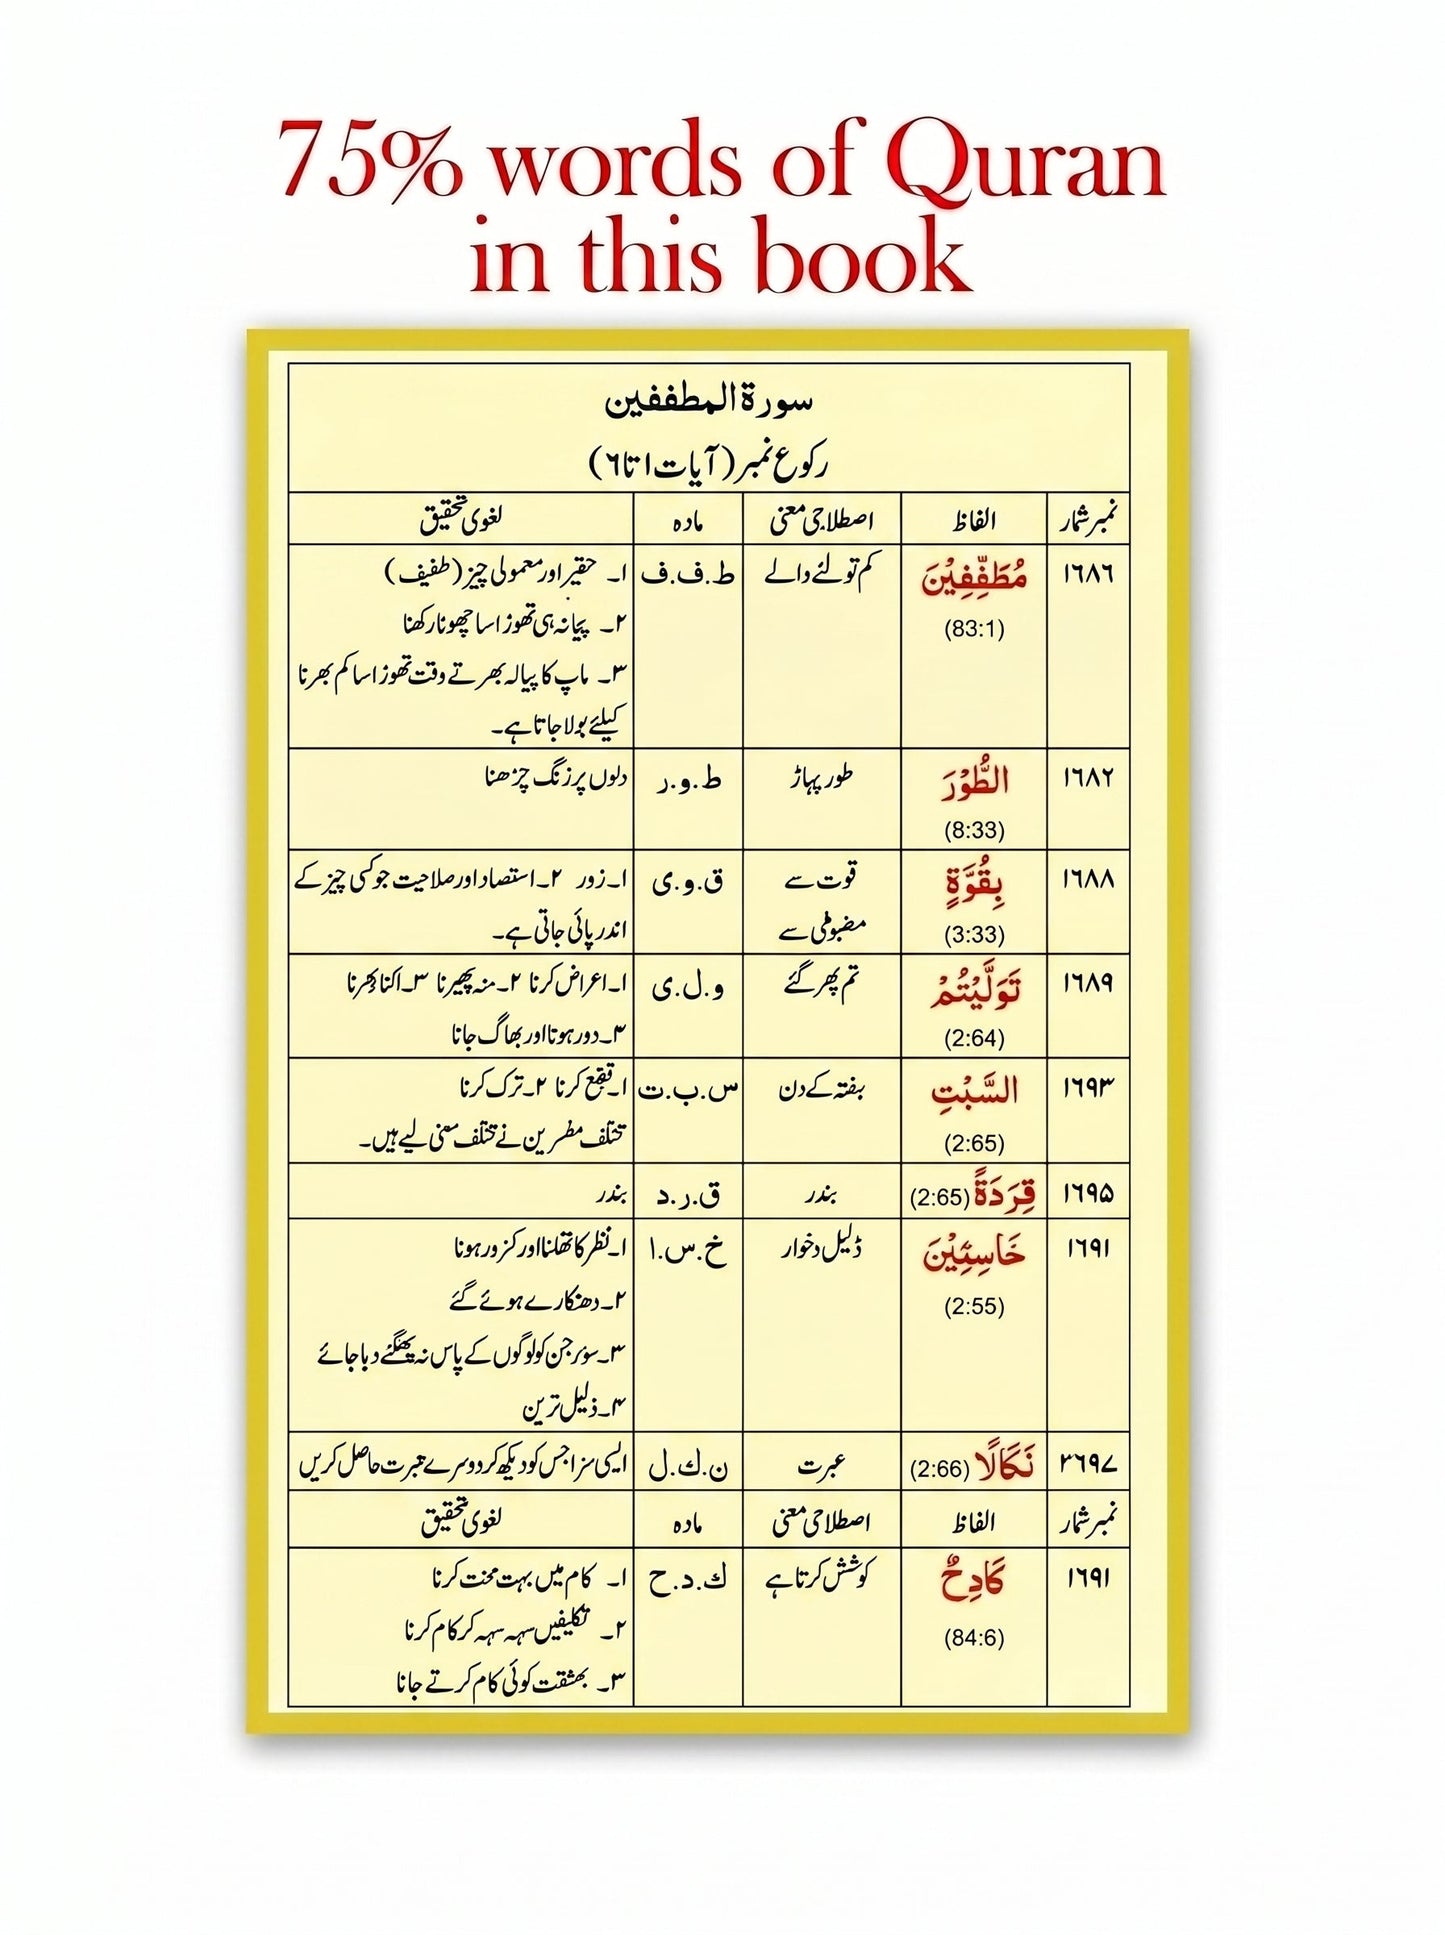 75% words of Quran
in this book
سورۃ المطففین
رکوع نمبر (آیات ۱ تا ۶)
نمبر شمار الفاظ اصطلاحی معنی مادہ لغوی تحقیق
۱۶۸۶ مُطَفِّفِیْنَ کم تولنے والے ط.ف.ف ۱۔ حقیر اور معمولی چیز (طفیف)
(83:1) ۲۔ پیمانہ ہی تھوڑا سا چھوٹا رکھنا
۳۔ ماپ کا پیالہ بھرتے وقت تھوڑا سا کم بھرنا
کیلئے بولا جاتا ہے۔
۱۶۸۲ الطُّوْرَ طور پہاڑ ط.و.ر دلوں پر زنگ چڑھنا
(8:33)
۱۶۸۸ بِقُوَّةٍ قوت سے ق.و.ی ۱۔زور ۲۔استصاد اور صلاحیت جو کسی چیز کے
(3:33) مضبوطی سے اندر پائی جاتی ہے۔
۱۶۸۹ تَوَلَّیْتُمْ تم پھر گئے و.ل.ی ۱۔اعراض کرنا ۲۔منہ پھیرنا ۳۔
(2:64) ۳۔دور ہونا اور بھاگ جانا
۱۶۹۳ السَّبْتِ ہفتہ کے دن س.ب.ت ۱۔ کرنا ۲۔ترک کرنا
(2:65) نے معنی لیے ہیں۔
۱۶۹۵ قِرَدَةً (2:65) بندر ق.ر.د بندر
۱۶۹۱ خَاسِئِیْنَ ذلیل دخوار خ.س.ا ۱۔نظر کا تھلنا اور کزور ہونا
(2:55) ۲۔دھتکارے ہوئے گئے
۳۔سؤر جن کو لوگوں کے پاس نہ دبا جائے
۴۔ذلیل ترین
۳۶۹۷ نَكَالًا (2:66) عبرت ن.ك.ل ایسی سزا جس کو دیکھ کر دوسرے عبرت حاصل کریں
نمبر شمار الفاظ اصطلاحی معنی مادہ لغوی تحقیق
۱۶۹۱ كَادِحٌ کوشش کرتا ہے ك.د.ح ۱۔ کام میں بہت محنت کرنا
(84:6) ۲۔ تکلیفیں سہہ سہہ کر کام کرنا
۳۔ بمشقت کوئی کام کرتے جانا